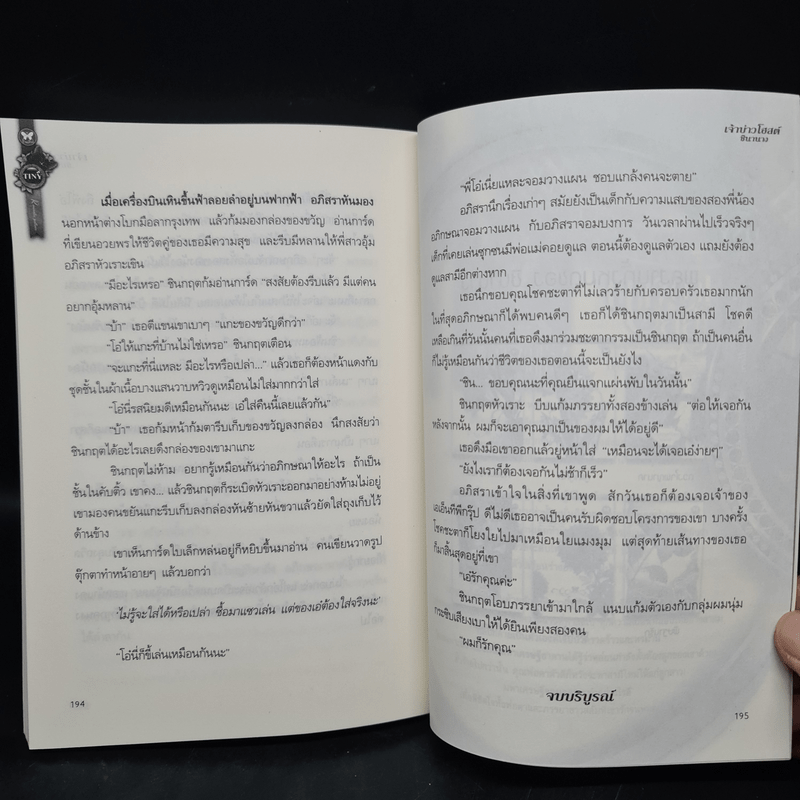 TINY
เมื่อเครื่องบินเหินขึ้นฟ้าลอยลำอยู่บนฟากฟ้า อภิสราหันมอง
นอกหน้าต่างโบกมือลากรุงเทพ แล้วก้มมองกล่องของขวัญ อ่านการ์ด
ที่เขียนอวยพรให้ชีวิตคู่ของเธอมีความสุข และรีบมีหลานให้พี่สาวอุ้ม
อภิสราหัวเราะเขิน
“มีอะไรเหรอ” ชินกฤตก้มอ่านการ์ด “สงสัยต้องรีบแล้ว มีแต่คน
อยากอุ้มหลาน”
“บ้า” เธอตีแขนเขาเบาๆ “แกะของขวัญดีกว่า”
“โอ๋ให้แกะที่บ้านไม่ใช่เหรอ” ชินกฤตเตือน
“จะแกะที่นี่แหละ มีอะไรหรือเปล่า...” แล้วเธอก็ต้องหน้าแดงกับ
ชุดชั้นในผ้าเนื้อบางแสนวาบหวิวดูเหมือนไม่ใส่มากกว่าใส่
“โอ๋นี่รสนิยมดีเหมือนกันนะ เอ๋ใส่คืนนี้เลยแล้วกัน”
“บ้า” เธอก้มหน้าก้มตารีบเก็บของขวัญลงกล่อง นึกสงสัยว่า
ชินกฤตได้อะไรเลยดึงกล่องของเขามาแกะ
ชินกฤตไม่ห้าม อยากรู้เหมือนกันว่าอภิกษณาให้อะไร ถ้าเป็น
ชั้นในคับติ้ว เขาคง... แล้วชินกฤตก็ระเบิดหัวเราะออกมาอย่างห้ามไม่อยู่
เขามองคนขยันแกะรีบเก็บลงกล่องหันซ้ายหันขวาแล้วยัดใส่ถุงเก็บไว้
ด้านข้าง
เขาเห็นการ์ดใบเล็กหล่นอยู่ก็หยิบขึ้นมาอ่าน คนเขียนวาดรูป
ตุ๊กตาทำหน้าอายๆ แล้วบอกว่า
‘ไม่รู้จะใส่ได้หรือเปล่า ซื้อมาแซวเล่น แต่ของเอ๋ต้องใส่จริงนะ’
“โอ๋นี่ก็ขี้เล่นเหมือนกันนะ”
194
เจ้าบ่าวโฮสต์
ชินานาง
“พี่โอ๋เนี่ยแหละจอมวางแผน ชอบแกล้งคนจะตาย”
อภิสรานึกเรื่องเก่าๆ สมัยยังเป็นเด็กกับความแสบของสองพี่น้อง
อภิกษณาจอมวางแผน กับอภิสราจอมบงการ วันเวลาผ่านไปเร็วจริงๆ
เด็กที่เคยเล่นซุกซนมีพ่อแม่คอยดูแล ตอนนี้ต้องดูแลตัวเอง แถมยังต้อง
ดูแลสามีอีกต่างหาก
เธอนึกขอบคุณโชคชะตาที่ไม่เลวร้ายกับครอบครัวเธอมากนัก
ในที่สุดอภิกษณาก็ได้พบคนดีๆ เธอก็ได้ชินกฤตมาเป็นสามี โชคดี
เหลือเกินที่วันนั้นคนที่เธอดึงมาร่วมชะตากรรมเป็นชินกฤต ถ้าเป็นคนอื่น
ก็ไม่รู้เหมือนกันว่าชีวิตของเธอตอนนี้จะเป็นยังไง
“ชิน... ขอบคุณนะที่คุณยืนแจกแผ่นพับในวันนั้น”
ชินกฤตหัวเราะ บีบแก้มภรรยาทั้งสองข้างเล่น “ต่อให้เจอกัน
หลังจากนั้น ผมก็จะเอาคุณมาเป็นของผมให้ได้อยู่ดี”
เธอดึงมือเขาออกแล้วยู่หน้าใส่ “เหมือนจะได้เจอเอ๋ง่ายๆ”
“ยังไงเราก็ต้องเจอกันไม่ช้าก็เร็ว”
อภิสราเข้าใจในสิ่งที่เขาพูด สักวันเธอก็ต้องเจอเจ้าของ
เอเอ็นทีพีกรุ๊ป ดีไม่ดีเธออาจเป็นคนรับผิดชอบโครงการของเขา บางครั้ง
โชคชะตาก็โยงใยไปมาเหมือนใยแมงมุม แต่สุดท้ายเส้นทางของเธอ
ก็มาสิ้นสุดอยู่ที่เขา
“เอ๋รักคุณค่ะ”
ชินกฤตโอบภรรยาเข้ามาใกล้ แนบแก้มตัวเองกับกลุ่มผมนุ่ม
กระซิบเสียงเบาให้ได้ยินเพียงสองคน
“ผมก็รักคุณ”
จบบริบูรณ์
195